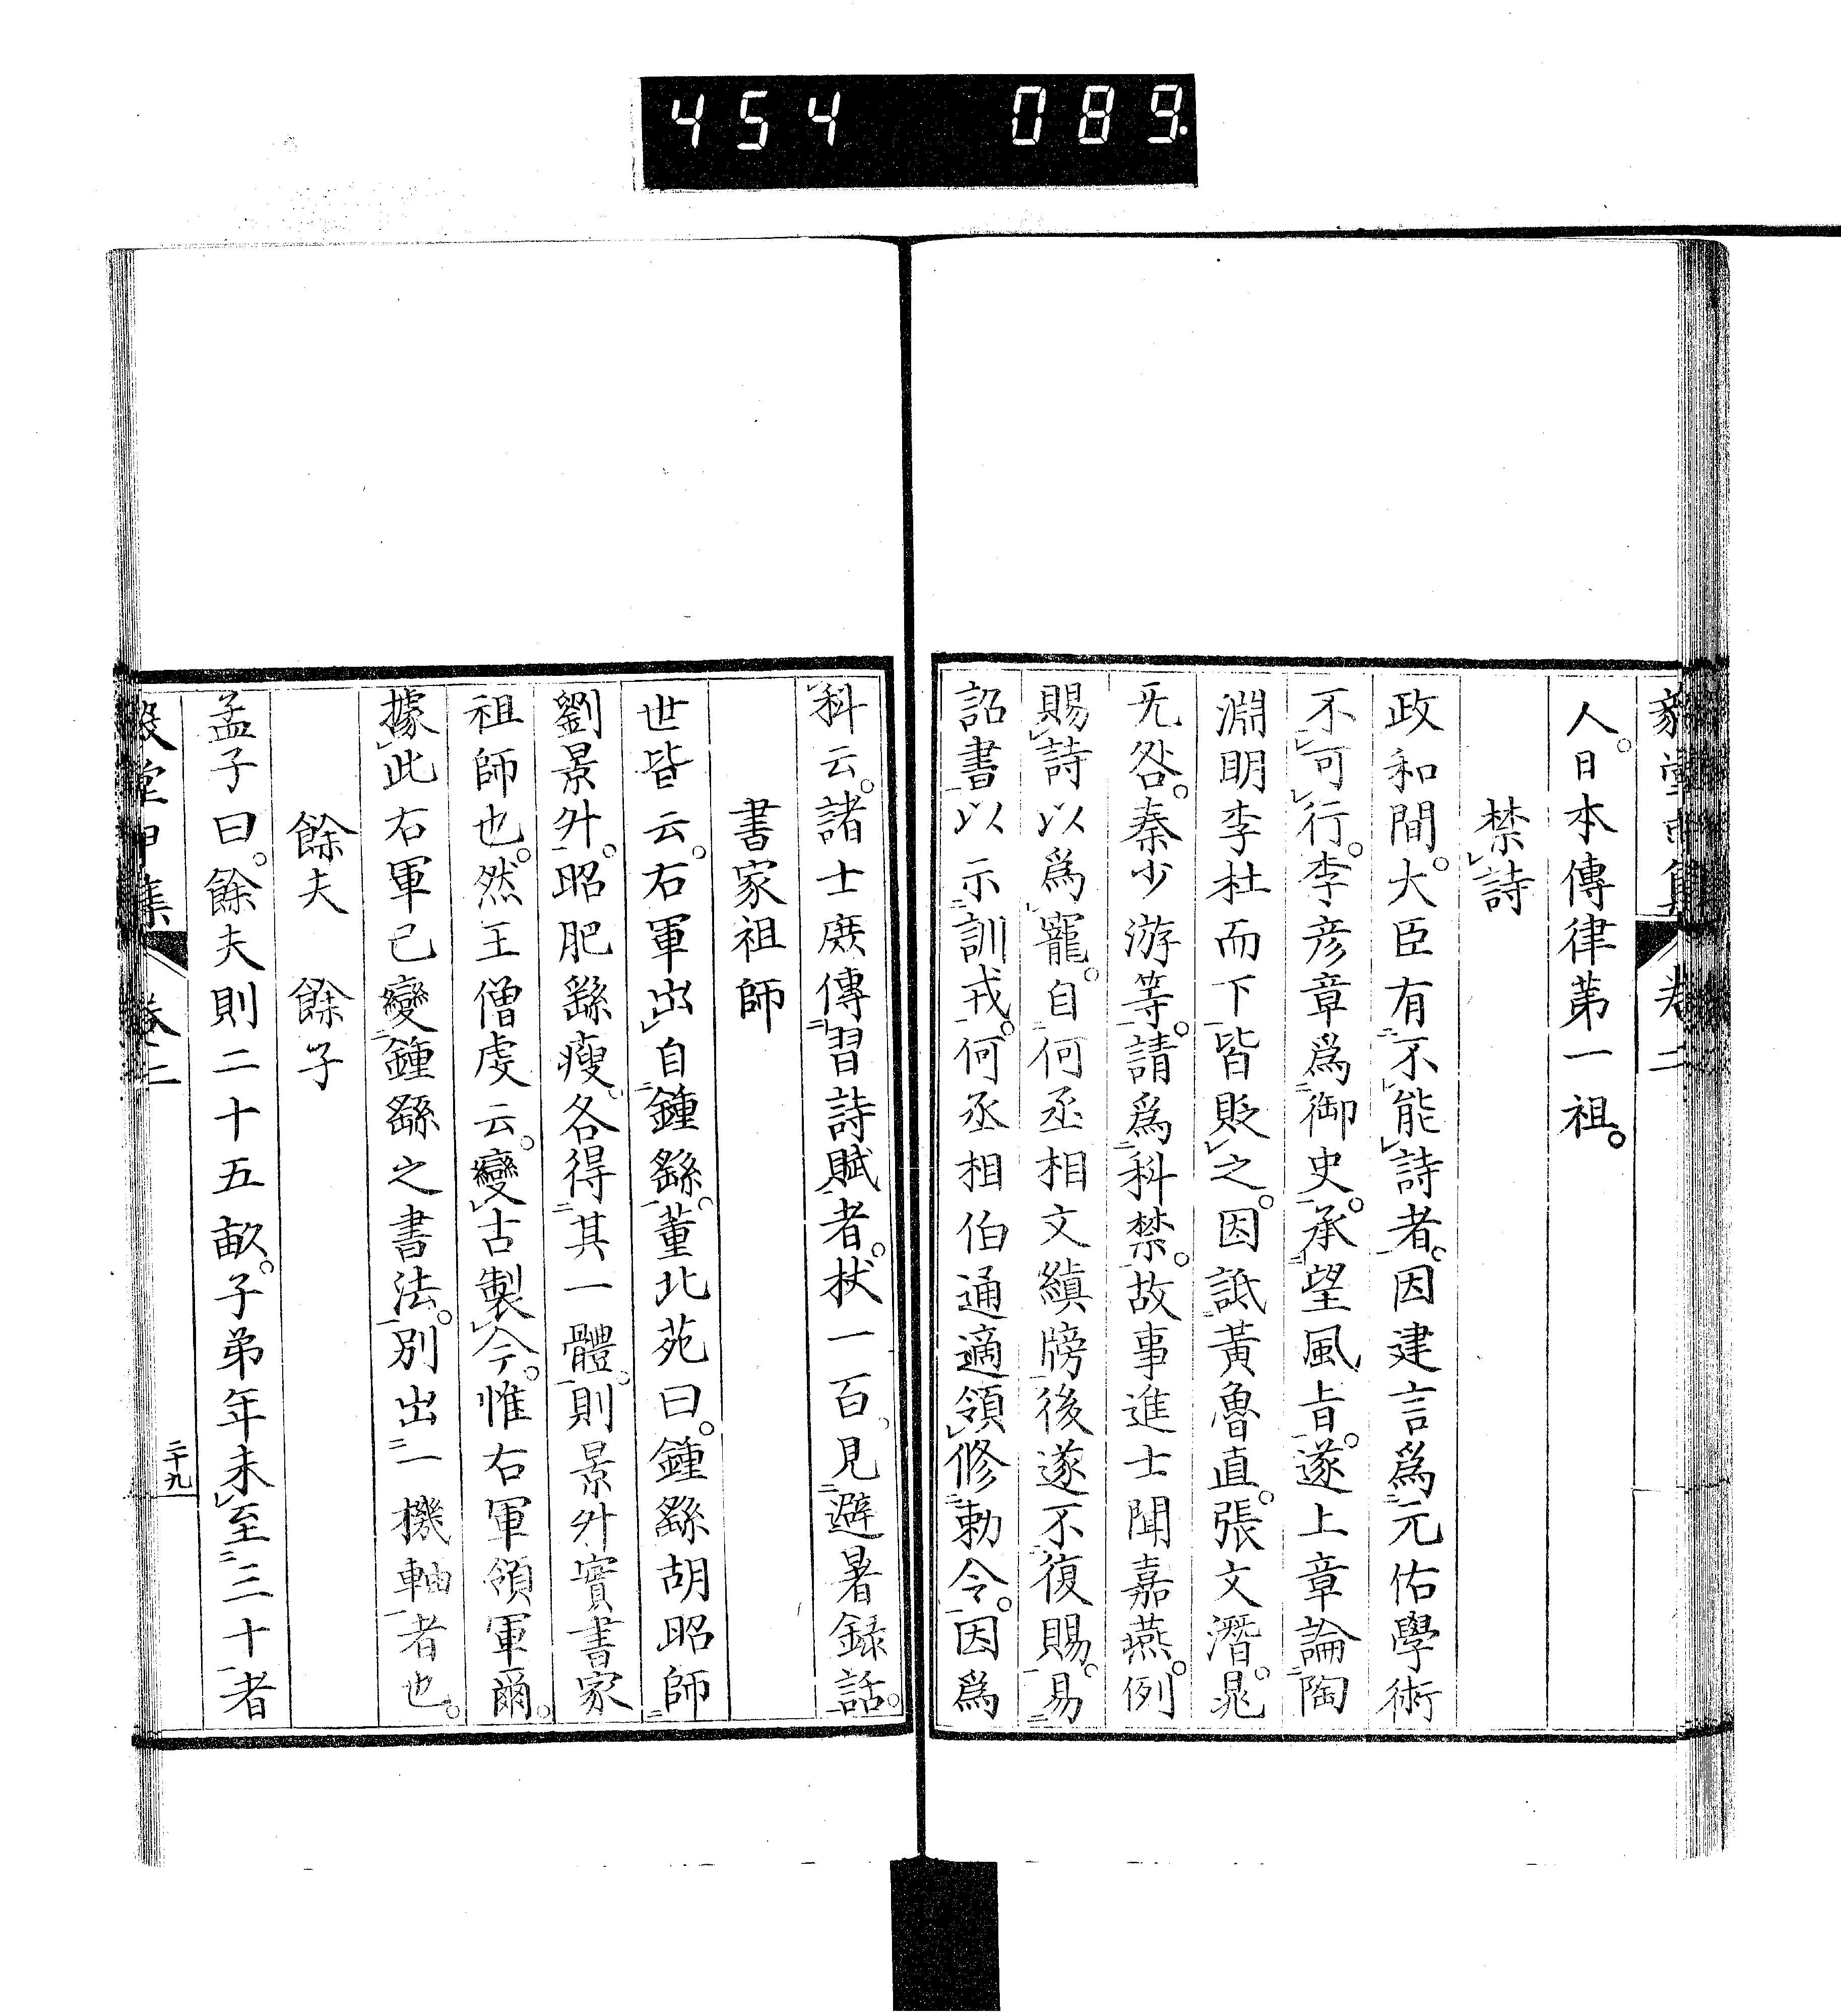 454 089.
卷二
人。日本傳律第一祖。
禁詩
政和間。大臣有不能詩者。因建言爲元佑學術
不可行。李彦章爲御史。承望風旨。遂上章論陶
淵明李杜而下皆貶之。因詆黃魯直。張文潛。晁
无咎。秦少游等。請爲科禁。故事進士聞嘉燕。例
賜詩以爲寵。自何丞相文縝牓後遂不復賜。易
詔書以示訓戒。何丞相伯通適領修勅令。因爲
科云。諸士庶傳習詩賦者。杖一百。見避暑録話。
書家祖師
世皆云。右軍出自鍾繇。董北苑曰。鍾繇胡昭師
劉景升。昭肥繇瘦。各得其一體。則景升實書家
祖師也。然王僧虔云。變古製今。惟右軍領軍爾。
據此右軍已變鍾繇之書法。別出一機軸者也。
餘夫 餘子
孟子曰。餘夫則二十五畝。子弟年未至三十者
堂甲集 卷二
二十九